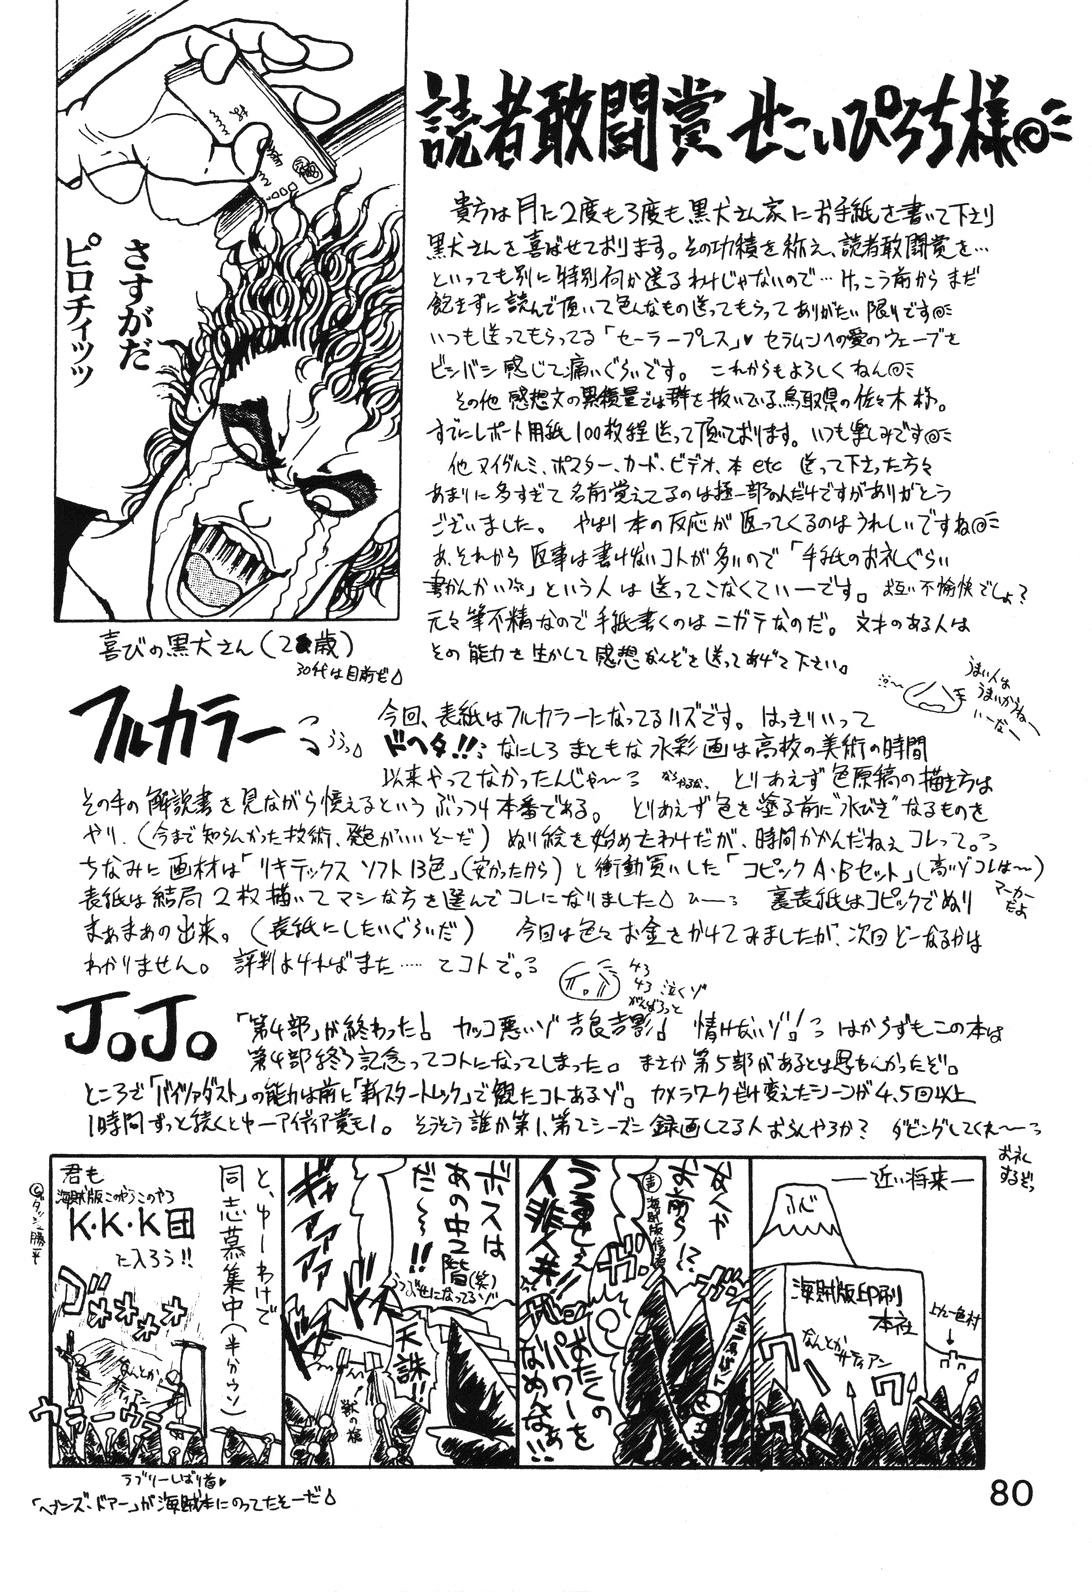 読者敢闘賞 せこいぴろち様
さすがだ
ピロチィッッ
喜びの黒犬さん(2 歳)
30代は目前だ
貴方は月に2度も3度も黒犬さん家にお手紙を書いて下さり
黒犬さんを喜ばせております。その功積を称え、読者敢闘賞を…
といっても別に特別何か送るわけじゃないので…けっこう前からまだ
飽きずに読んで頂いて色んなもの送ってもらってありがたい限りです
いつも送ってもらってる「セーラープレス」♥ セラムンへの愛のウェーブを
ビンバン感じて痛いぐらいです。 これからもよろしくねん
その他 感想文の累積量では群を抜いている鳥取県の佐々木様。
すでにレポート用紙100枚程送って頂いております。いつも楽しみです
他 ヌイグルミ、ポスター、カード、ビデオ、本 etc 送って下さった方々
あまりに多すぎて名前覚えてるのは極一部の人だけですがありがとう
ございました。 やはり本の反応が返ってくるのはうれしいですね
あ、それから 返事は書けないコトが多いので「手紙のお礼ぐらい
書かんかい」という人は送ってこなくていーです。お互い不愉快でしょ?
元々筆不精なので手紙書くのはニガテなのだ。文才のある人は
その能力を生かして感想なんぞを送ってあげて下さい。
うまい人は
うまいからねー
いーなー
フルカラー
ううっ
今回、表紙はフルカラーになってるハズです。はっきりいって
ドヘタ!! なにしろ まともな水彩画は高校の美術の時間
以来やってなかったんじゃ〜 とりあえず色原稿の描き方は
その手の解説書を見ながら憶えるという ぶっつけ本番である。 とりあえず色を塗る前に"水びき"なるものを
やり、(今まで知らんかった技術、発色がいいそーだ) ぬり絵を始めたわけだが、時間かかんだねぇ コレって。
ちなみに画材は「リキテックス ソフト13色」(安かったから)と衝動買いした「コピック A・Bセット」(高いゾコレは〜)
マーカー
だよ
表紙は結局2枚描いてマシな方を選んでコレになりました ひーっ 裏表紙はコピックでぬり
まぁまぁの出来。(表紙にしたいぐらいだ) 今回は色々お金をかけてみましたが、次回どーなるかは
わかりません。 評判よければまた……てコトで。
泣くゾ
がんばろっと
JoJo
「第4部」が終わった! カッコ悪いゾ 吉良吉影! 情けないゾ! はからずもこの本は
第4部終了記念ってコトになってしまった。 まさか第5部があるとは思もんかったぞ。
ところで「バイツァダスト」の能力は前に「新スタートレック」で観たコトあるゾ。カメラワークだけ変えたシーンが4、5回以上
1時間ずっと続くとゆーアイディア賞も1。そうそう誰か第1、第2シーズン録画してる人おらんやろか? ダビングしてくれ〜っ
お礼
するぞっ
—近い将来—
ふじ
海賊版印刷
本社
上九一色村
なんとか
サティアン
なんや
お前ら!?
うるせぇ
人非人共!!
おたくの
パワーを
なめんなぁ!!
ボスは
あの中2階(笑)
だ〜〜!!
天誅!!
獣の槍
ギャアアアアア
と、ゆーわけで
同志募集中(半分ウソ)
君も
海賊版このやろこのやろ
K・K・K団
に入ろう!!
ゴオォォォ
なんとか
サティアン
ウラーウラー
ラブリーしばり首♥
「ヘブンズ・ドアー」が海賊本にのってたそーだ
80